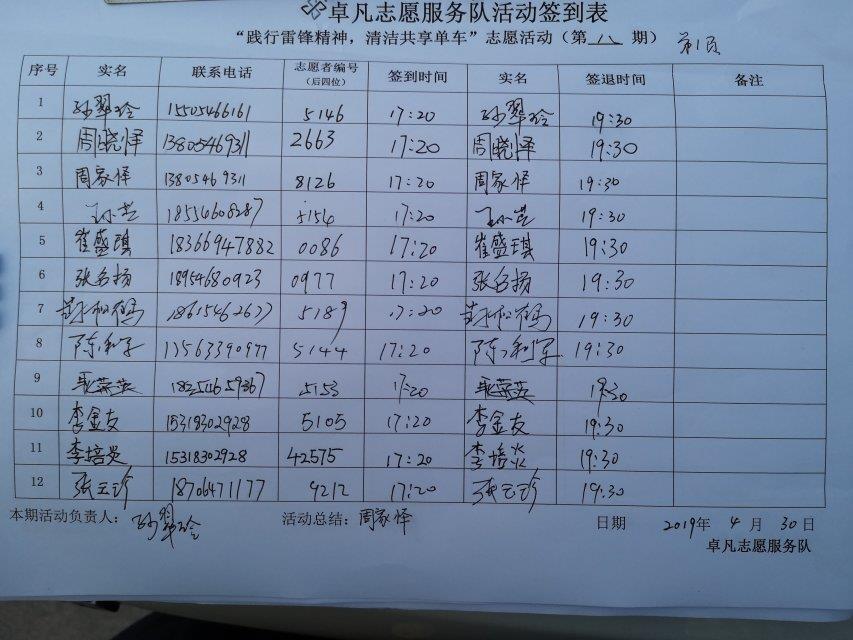 卓凡志愿服务队活动签到表
“践行雷锋精神，清洁共享单车”志愿活动（第 八 期） 第1页
序号 实名 联系电话 志愿者编号（后四位） 签到时间 实名 签退时间 备注
1 孙翠玲 15505466161 5146 17:20 孙翠玲 19:30
2 周晓怿 13805469311 2663 17:20 周晓怿 19:30
3 周家怿 13805469311 8126 17:20 周家怿 19:30
4 18554608287 5154 17:20 19:30
5 崔盛琪 18366947882 0086 17:20 崔盛琪 19:30
6 张名扬 18954680923 0977 17:20 张名扬 19:30
7 5189 17:20 19:30
8 陈利军 5144 17:20 陈利军 19:30
9 5153 17:20 19:30
10 李金友 15318302928 5105 17:20 李金友 19:30
11 15318302928 42575 17:20 19:30
12 张玉珍 18706471177 9212 17:20 张玉珍 19:30
本期活动负责人： 孙翠玲 活动总结：周家怿 日期 2019年 4 月 30 日
卓凡志愿服务队